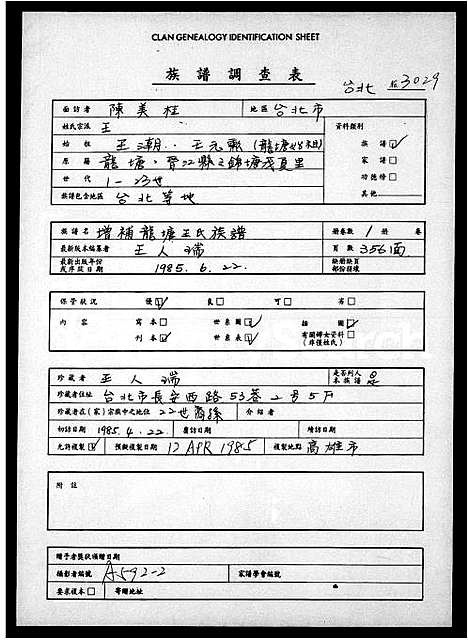 CLAN GENEALOGY IDENTIFICATION SHEET
族譜調查表
台北 3029
面訪者 陳美桂 地區 台北市
姓氏宗派 王 資料類別
始祖 王潮 王元
族譜 ☑
原籍 龍塘
家譜 □
世代 1-23世
功德榜 □
族譜包含地區 台北等地
其他
族譜名 增補龍塘王氏族譜 冊卷數 1 冊 卷
最新版本編纂者 王人瑞 頁數 356面
最新出版年份或序跋日期 1985.6.22. 缺冊缺頁部份損壞
保管狀況 優☑ 良□ 可□ 劣□
內容 寫本□ 世系圖☑ 插圖☑
刊本☑ 世系表☑ 有關婦女資料(非僅姓氏) □
珍藏者 王人瑞 是否列入本族譜 是
珍藏者住址 台北市長安西路53巷2号5F
珍藏者在(家)宗族中之地位 22世裔孫 介紹者
初訪日期 1985.4.22. 覆訪日期 續訪日期
允許複製☑ 預擬複製日期 12 APR 1985 複製地點 高雄市
附註
贈予者獎狀頒贈日期
攝影者編號 A592-2 家譜學會編號
要求複本□ 寄贈地址